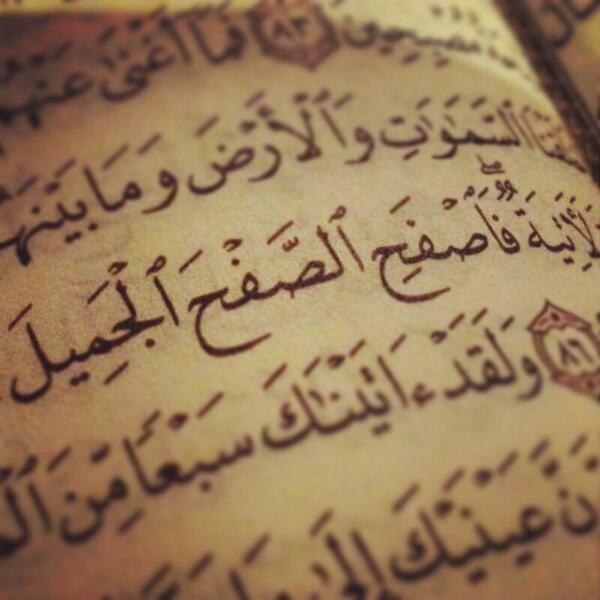 مُصْبِحِينَ ٨٣ فَمَآ أَغْنَىٰ عَنْهُم
ٱلسَّمَٰوَٰتِ وَٱلْأَرْضَ وَمَا بَيْنَهُمَآ
لَأٓتِيَةٌ ۖ فَٱصْفَحِ ٱلصَّفْحَ ٱلْجَمِيلَ
٨٦ وَلَقَدْ ءَاتَيْنَٰكَ سَبْعًا مِّنَ
عَيْنَيْكَ إِلَىٰ